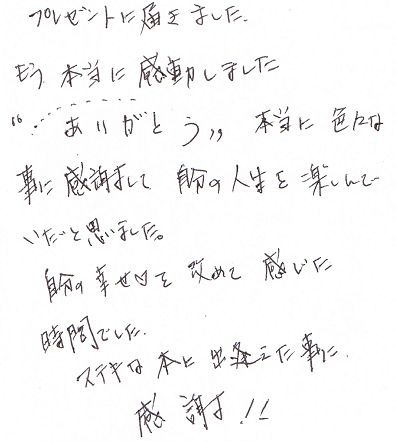 プレゼントに届きました。
もう 本当に 感動しました
“……ありがとう„ 本当に 色々な
事に 感謝して 自分の人生を 楽しんで
いたいと思いました。
自分の幸せ♡を 改めて 感じた
時間でした。
ステキな 本に 出逢えた事に
感謝!!